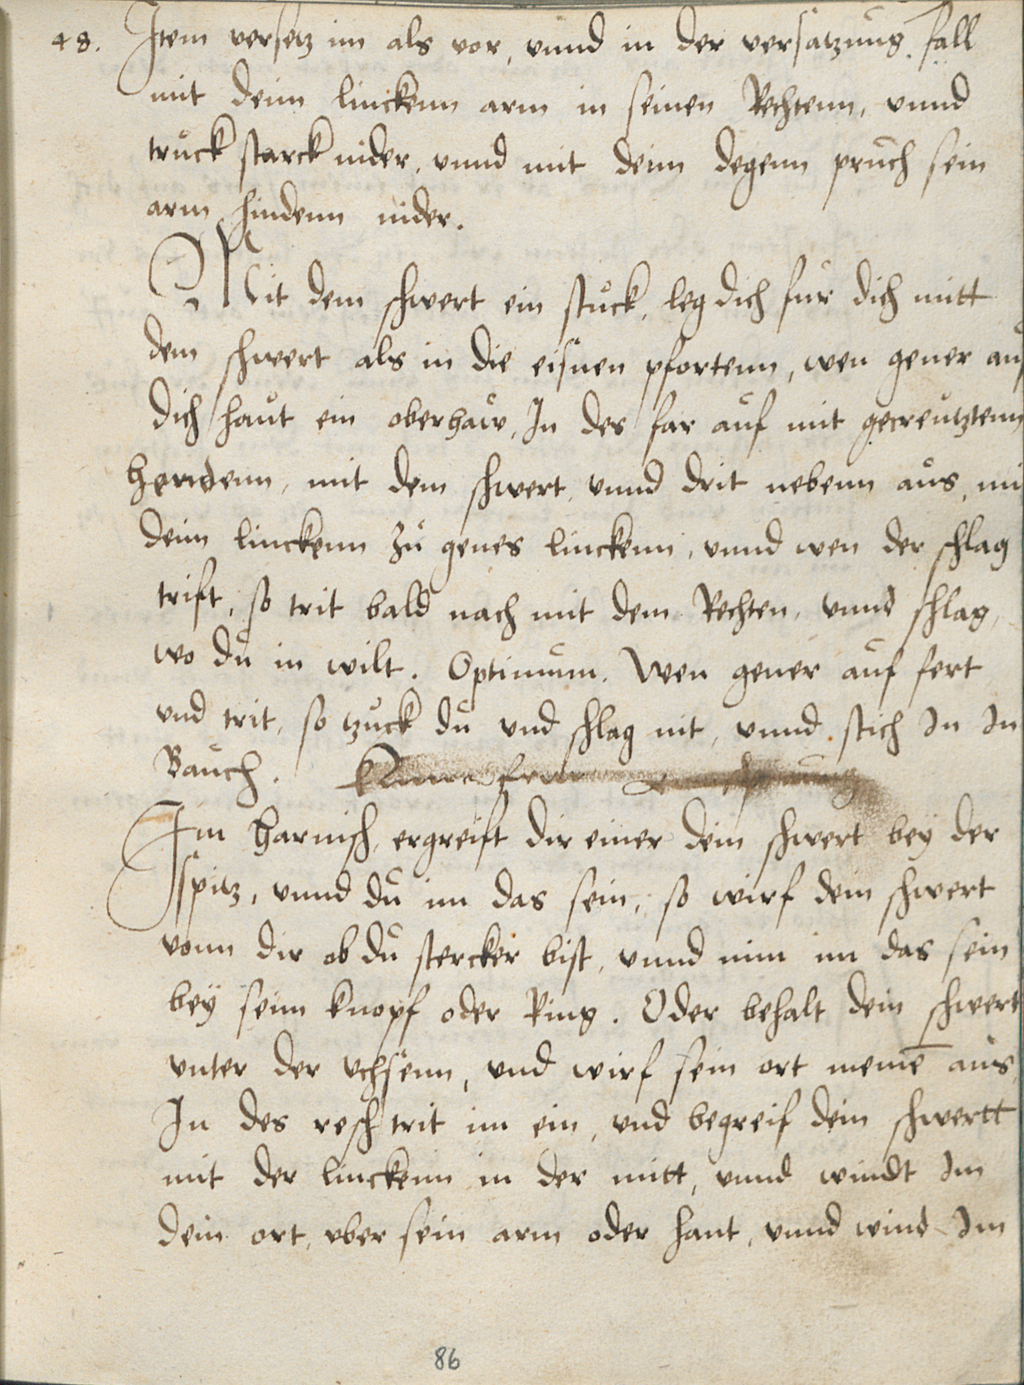 48. Item versetz im als vor, unnd in der versatzung. fall
mit deim linckenn arm in seinen Rechtenn, unnd
truck starck nider, unnd mit deim degenn pruch sein
arm hindenn nider.
Mit dem schwert ein stuck, leg dich fur dich mitt
dem schwert als in die eisnen pfortenn, wen gener auf
dich haut ein oberhaw, In des far auf mit gecreutztenn
hendenn, mit dem schwert, unnd drit nebenn aus, mi
deim linckenn zu genes linckenn, unnd wen der schlag
trift, so trit bald nach mit dem Rechten, unnd schlag,
wo du in wilt. Optimum. Wen gener auf fert
und trit, so tzuck du und schlag nit, unnd stich In In
Bauch.
Im harnisch, ergreift dir einer dein schwert bey der
spitz, unnd du im das sein, so wirf dein schwert
vonn dir ob du stercker bist, unnd nim im das sein
bey seim knopf oder Ring. Oder behalt dein schwert
unter der uchsenn, und wirf sein ort aus,
In des resch trit im ein, und begreif dein schwertt
mit der linckenn in der mitt, unnd windt Im
dein ort, uber sein arm oder hant, unnd wind Im
86